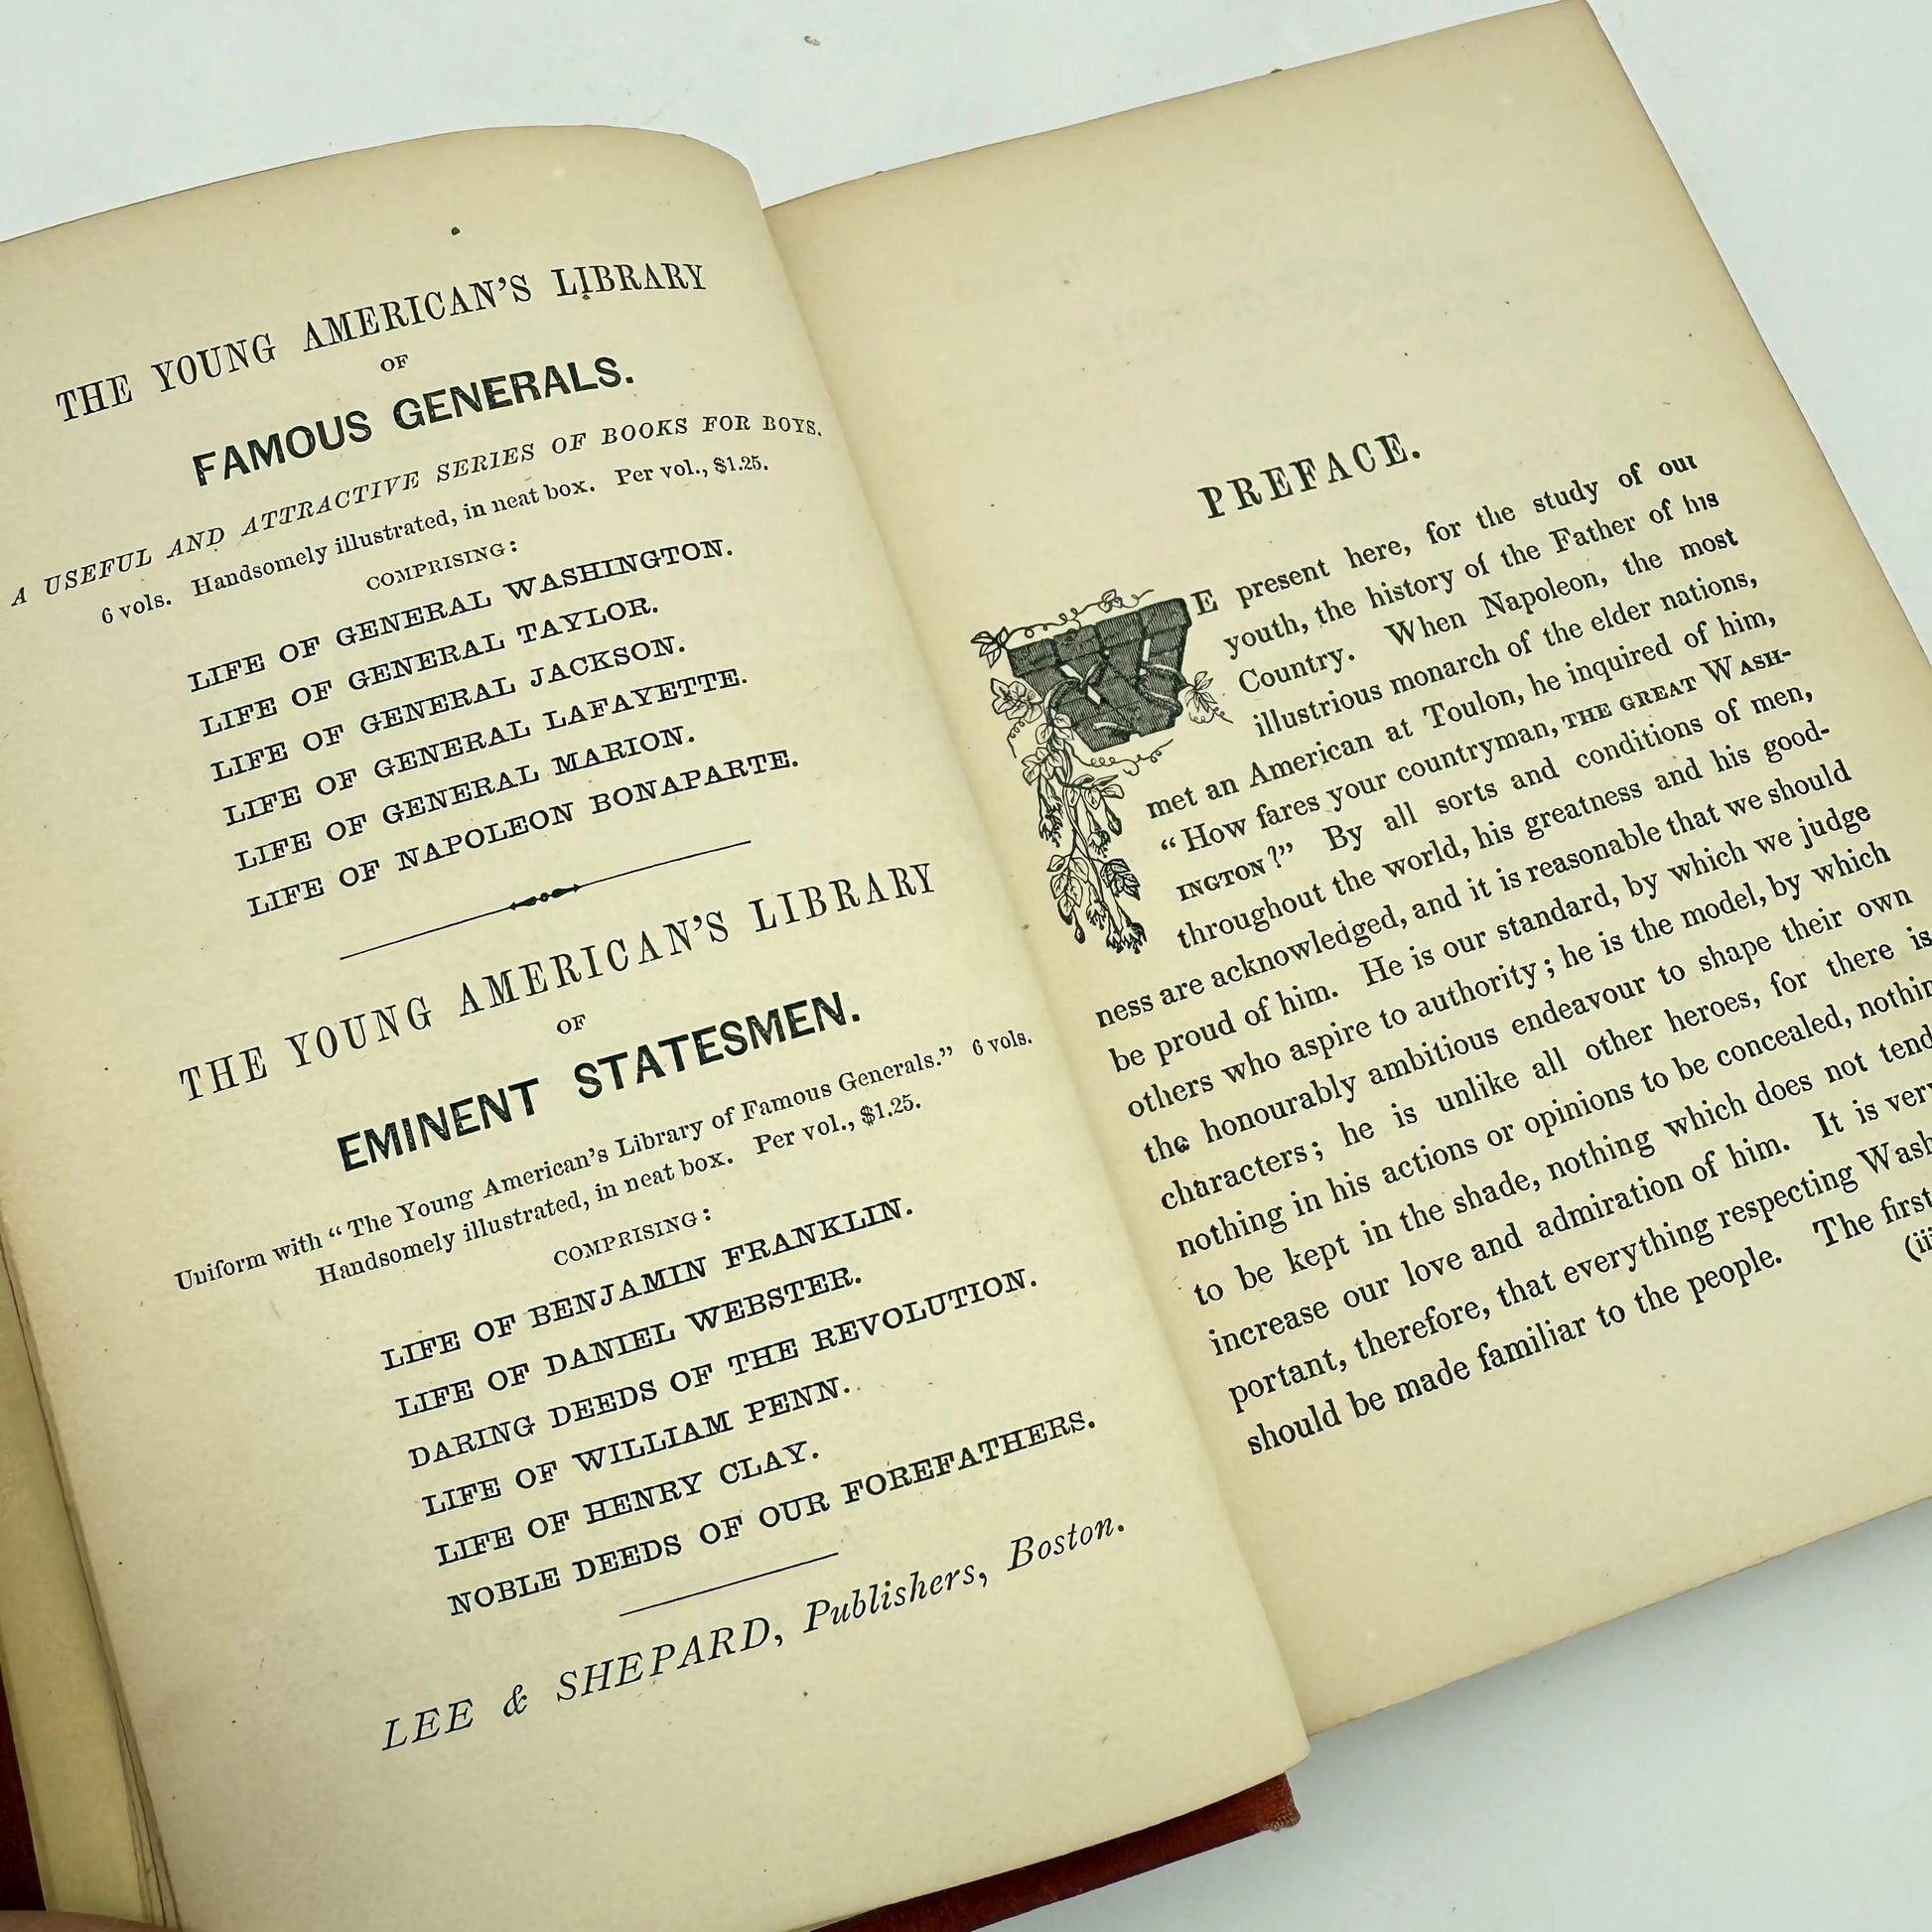 THE YOUNG AMERICAN'S LIBRARY
OF
FAMOUS GENERALS.
A USEFUL AND ATTRACTIVE SERIES OF BOOKS FOR BOYS.
6 vols. Handsomely illustrated, in neat box. Per vol., $1.25.
COMPRISING:
LIFE OF GENERAL WASHINGTON.
LIFE OF GENERAL TAYLOR.
LIFE OF GENERAL JACKSON.
LIFE OF GENERAL LAFAYETTE.
LIFE OF GENERAL MARION.
LIFE OF NAPOLEON BONAPARTE.
THE YOUNG AMERICAN'S LIBRARY
OF
EMINENT STATESMEN.
Uniform with "The Young American's Library of Famous Generals." 6 vols.
Handsomely illustrated, in neat box. Per vol., $1.25.
COMPRISING:
LIFE OF BENJAMIN FRANKLIN.
LIFE OF DANIEL WEBSTER.
DARING DEEDS OF THE REVOLUTION.
LIFE OF WILLIAM PENN.
LIFE OF HENRY CLAY.
NOBLE DEEDS OF OUR FOREFATHERS.
LEE & SHEPARD, Publishers, Boston.
PREFACE.
WE present here, for the study of our
youth, the history of the Father of his
Country. When Napoleon, the most
illustrious monarch of the elder nations,
met an American at Toulon, he inquired of him,
"How fares your countryman, THE GREAT WASH-
INGTON?" By all sorts and conditions of men,
throughout the world, his greatness and his good-
ness are acknowledged, and it is reasonable that we should
be proud of him. He is our standard, by which we judge
others who aspire to authority; he is the model, by which
the honourably ambitious endeavour to shape their own
characters; he is unlike all other heroes, for there is
nothing in his actions or opinions to be concealed,
to be kept in the shade, nothing which does not tend
increase our love and admiration of him. It is very
portant, therefore, that everything respecting Wash
should be made familiar to the people. The first
(iii